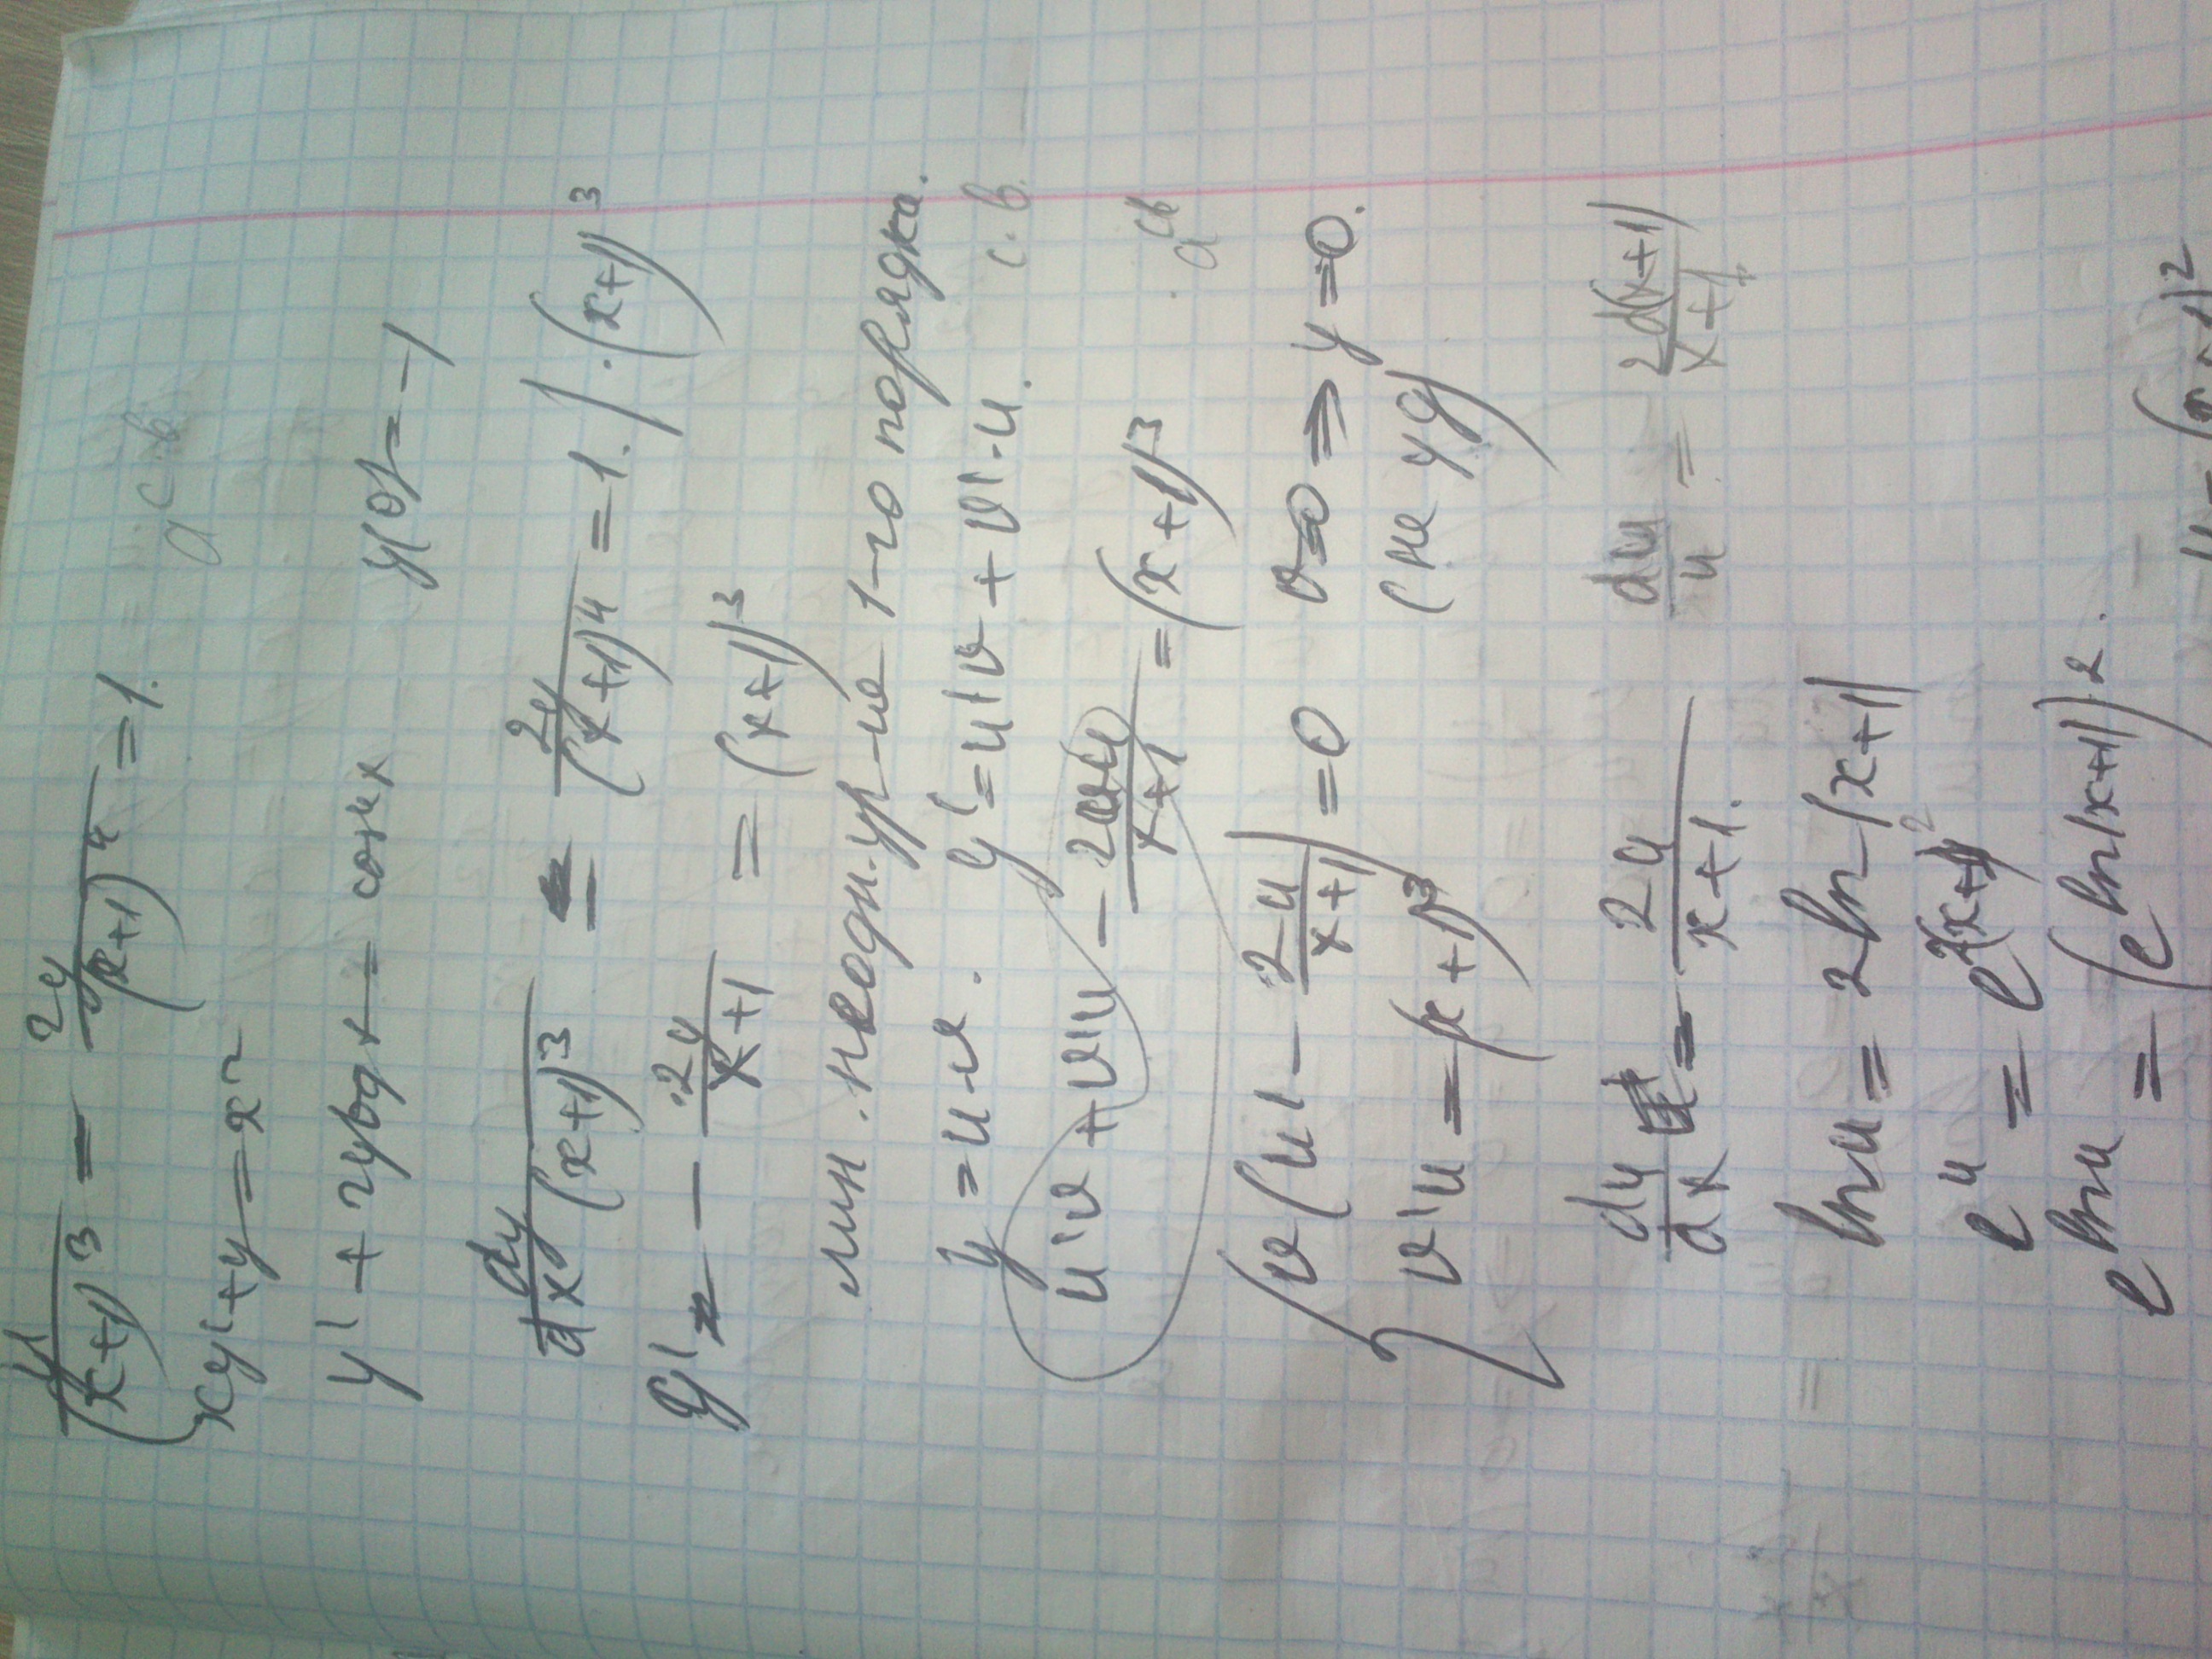 y'/(x+1)³ = 2y/(x+1)⁴ = 1.
xy' + y = x²
a^(c·b)
y' + 2y tg x = cos x y(0) = -1
dy/(dx (x+1)³) = 2y/(x+1)⁴ = 1. | · (x+1)³
y' - 2y/(x+1) = (x+1)³
лин. неодн. ур-ие 1-го порядка.
y = u·v. y' = u'v + v'·u. c·b
u'v + v'u - 2uv/(x+1) = (x+1)³ a^(cb)
{ v(u' - 2u/(x+1)) = 0 v=0 ⇒ y=0.
v'u = (x+1)³ (не уд)
du/dx = 2u/(x+1). du/u = 2d(x+1)/(x+1)
ln u = 2 ln |x+1|
e^u = e^(x+1)²
e^(ln u) = (e^(ln|x+1|))².